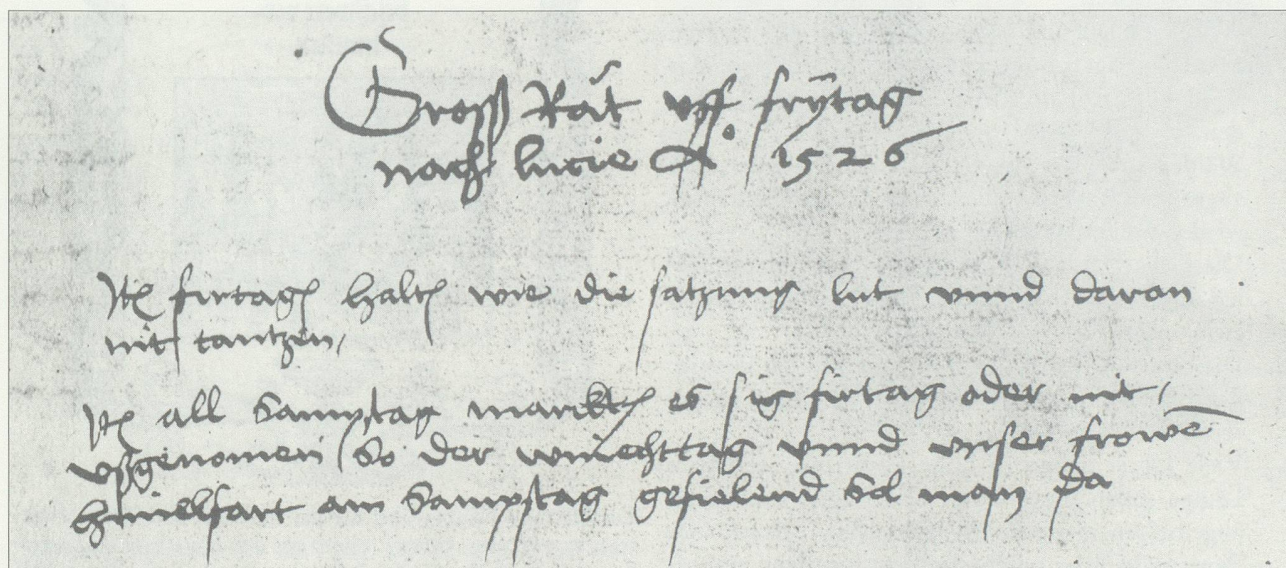 Gross Rat uff frytag
nach lucie Ao 1526
Ite firtage halte wie die satzung lut unnd daran
nit tantzen,
Ite all Sampstag marckte es sig firtag oder nit,
ußgenomen So der winechttag unnd unser frowē
himelfart am Sampstag gefielend Sol man da